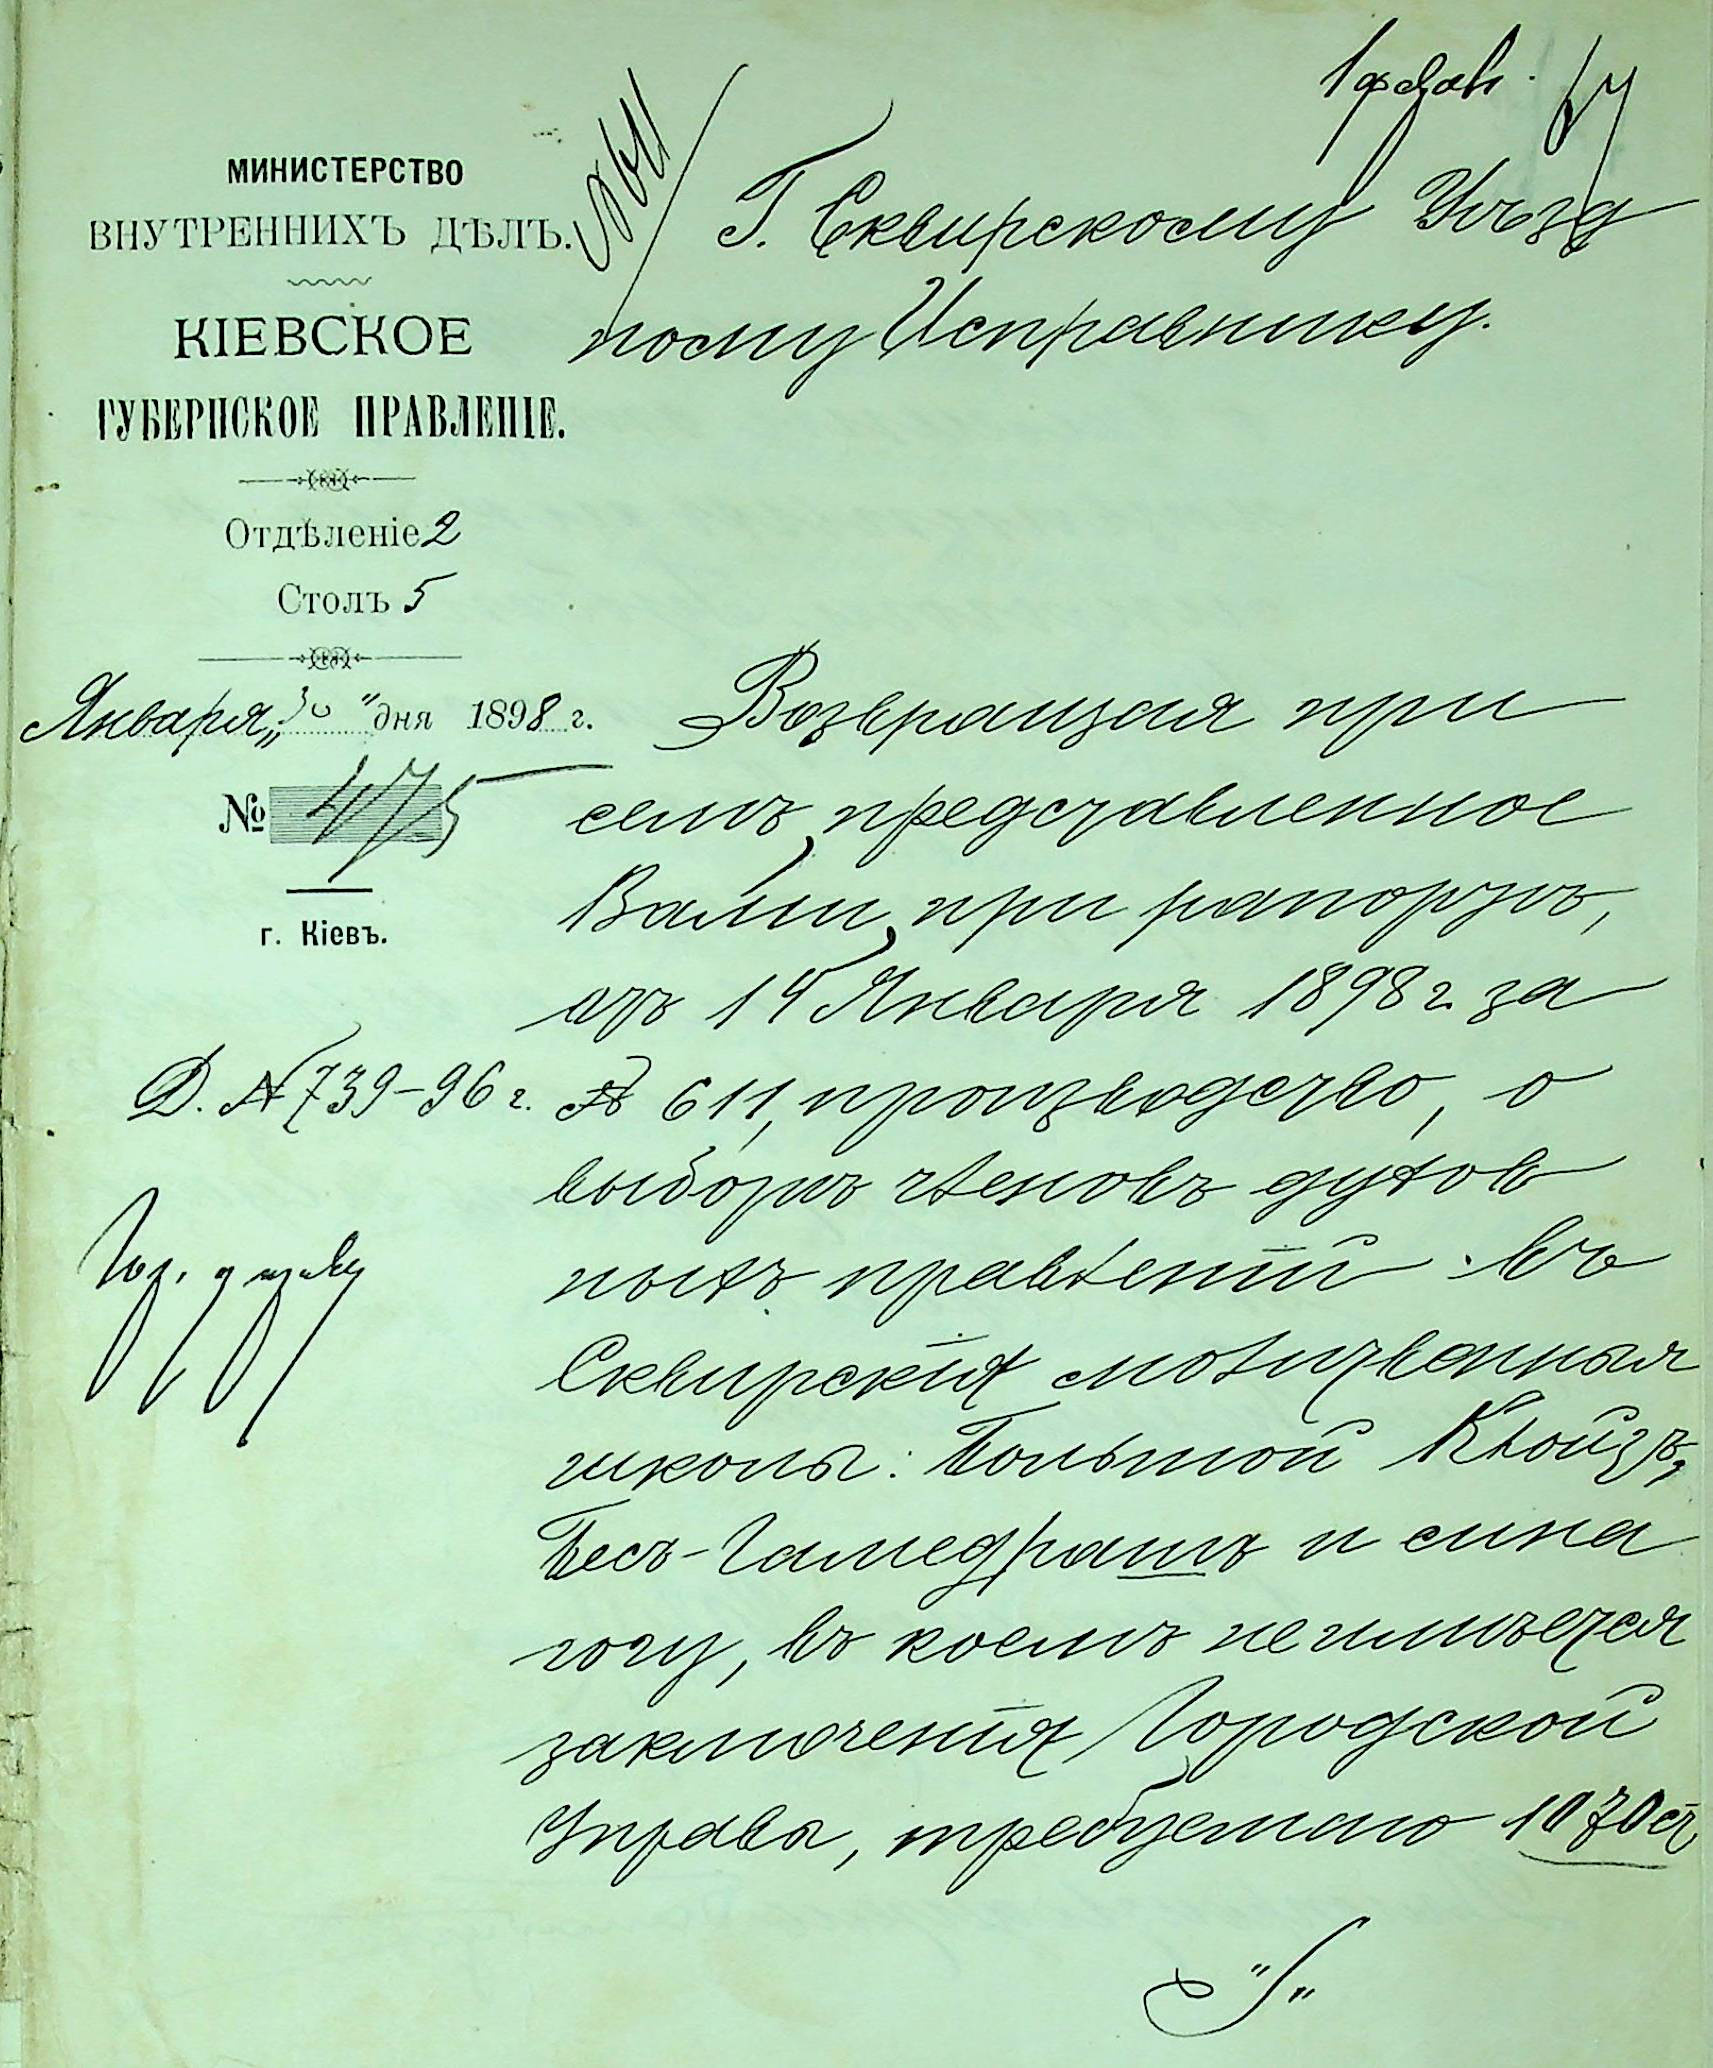 МИНИСТЕРСТВО
ВНУТРЕННИХЪ ДѢЛЪ.
КІЕВСКОЕ
ГУБЕРНСКОЕ ПРАВЛЕНІЕ.
Отдѣленіе 2
Столъ 5
Января „30" дня 1898 г.
№ 475
г. Кіевъ.
Д. № 739-96 г.
Г. Сквирскому Уѣзд
ному Исправнику.
Возвращая при
семъ, представленное
Вами, при рапортѣ,
отъ 14 Января 1898 г. за
№ 611, производство, о
выборѣ членовъ духов
ныхъ правленій въ
Сквирскія молитвенныя
школы: Большой Клойзъ,
Бесъ-Гамедрашъ и сина
гогу, въ коемъ не имѣется
заключенія Городской
Управы, требуемаго 1070 ст